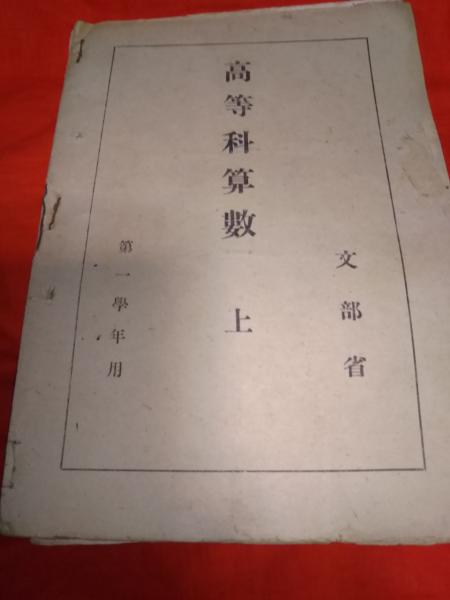 文部省
高等科算數 上
第一學年用